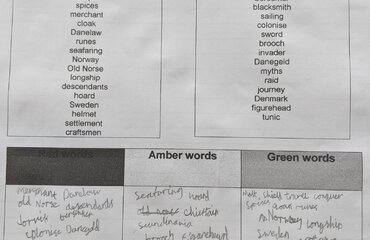 spices
merchant
cloak
Danelaw
runes
seafaring
Norway
Old Norse
longship
descendants
hoard
Sweden
helmet
settlement
craftsmen
blacksmith
sailing
colonise
sword
brooch
invader
Danegeld
myths
raid
journey
Denmark
figurehead
tunic
Red words
Amber words
Green words
merchant Danelaw
old Norse descendants
colonise Danegeld
seafaring hoard
chieftain
Scandinavia
brooch figurehead
shield travel conquer
spices cloak runes
Norway longship
Sweden